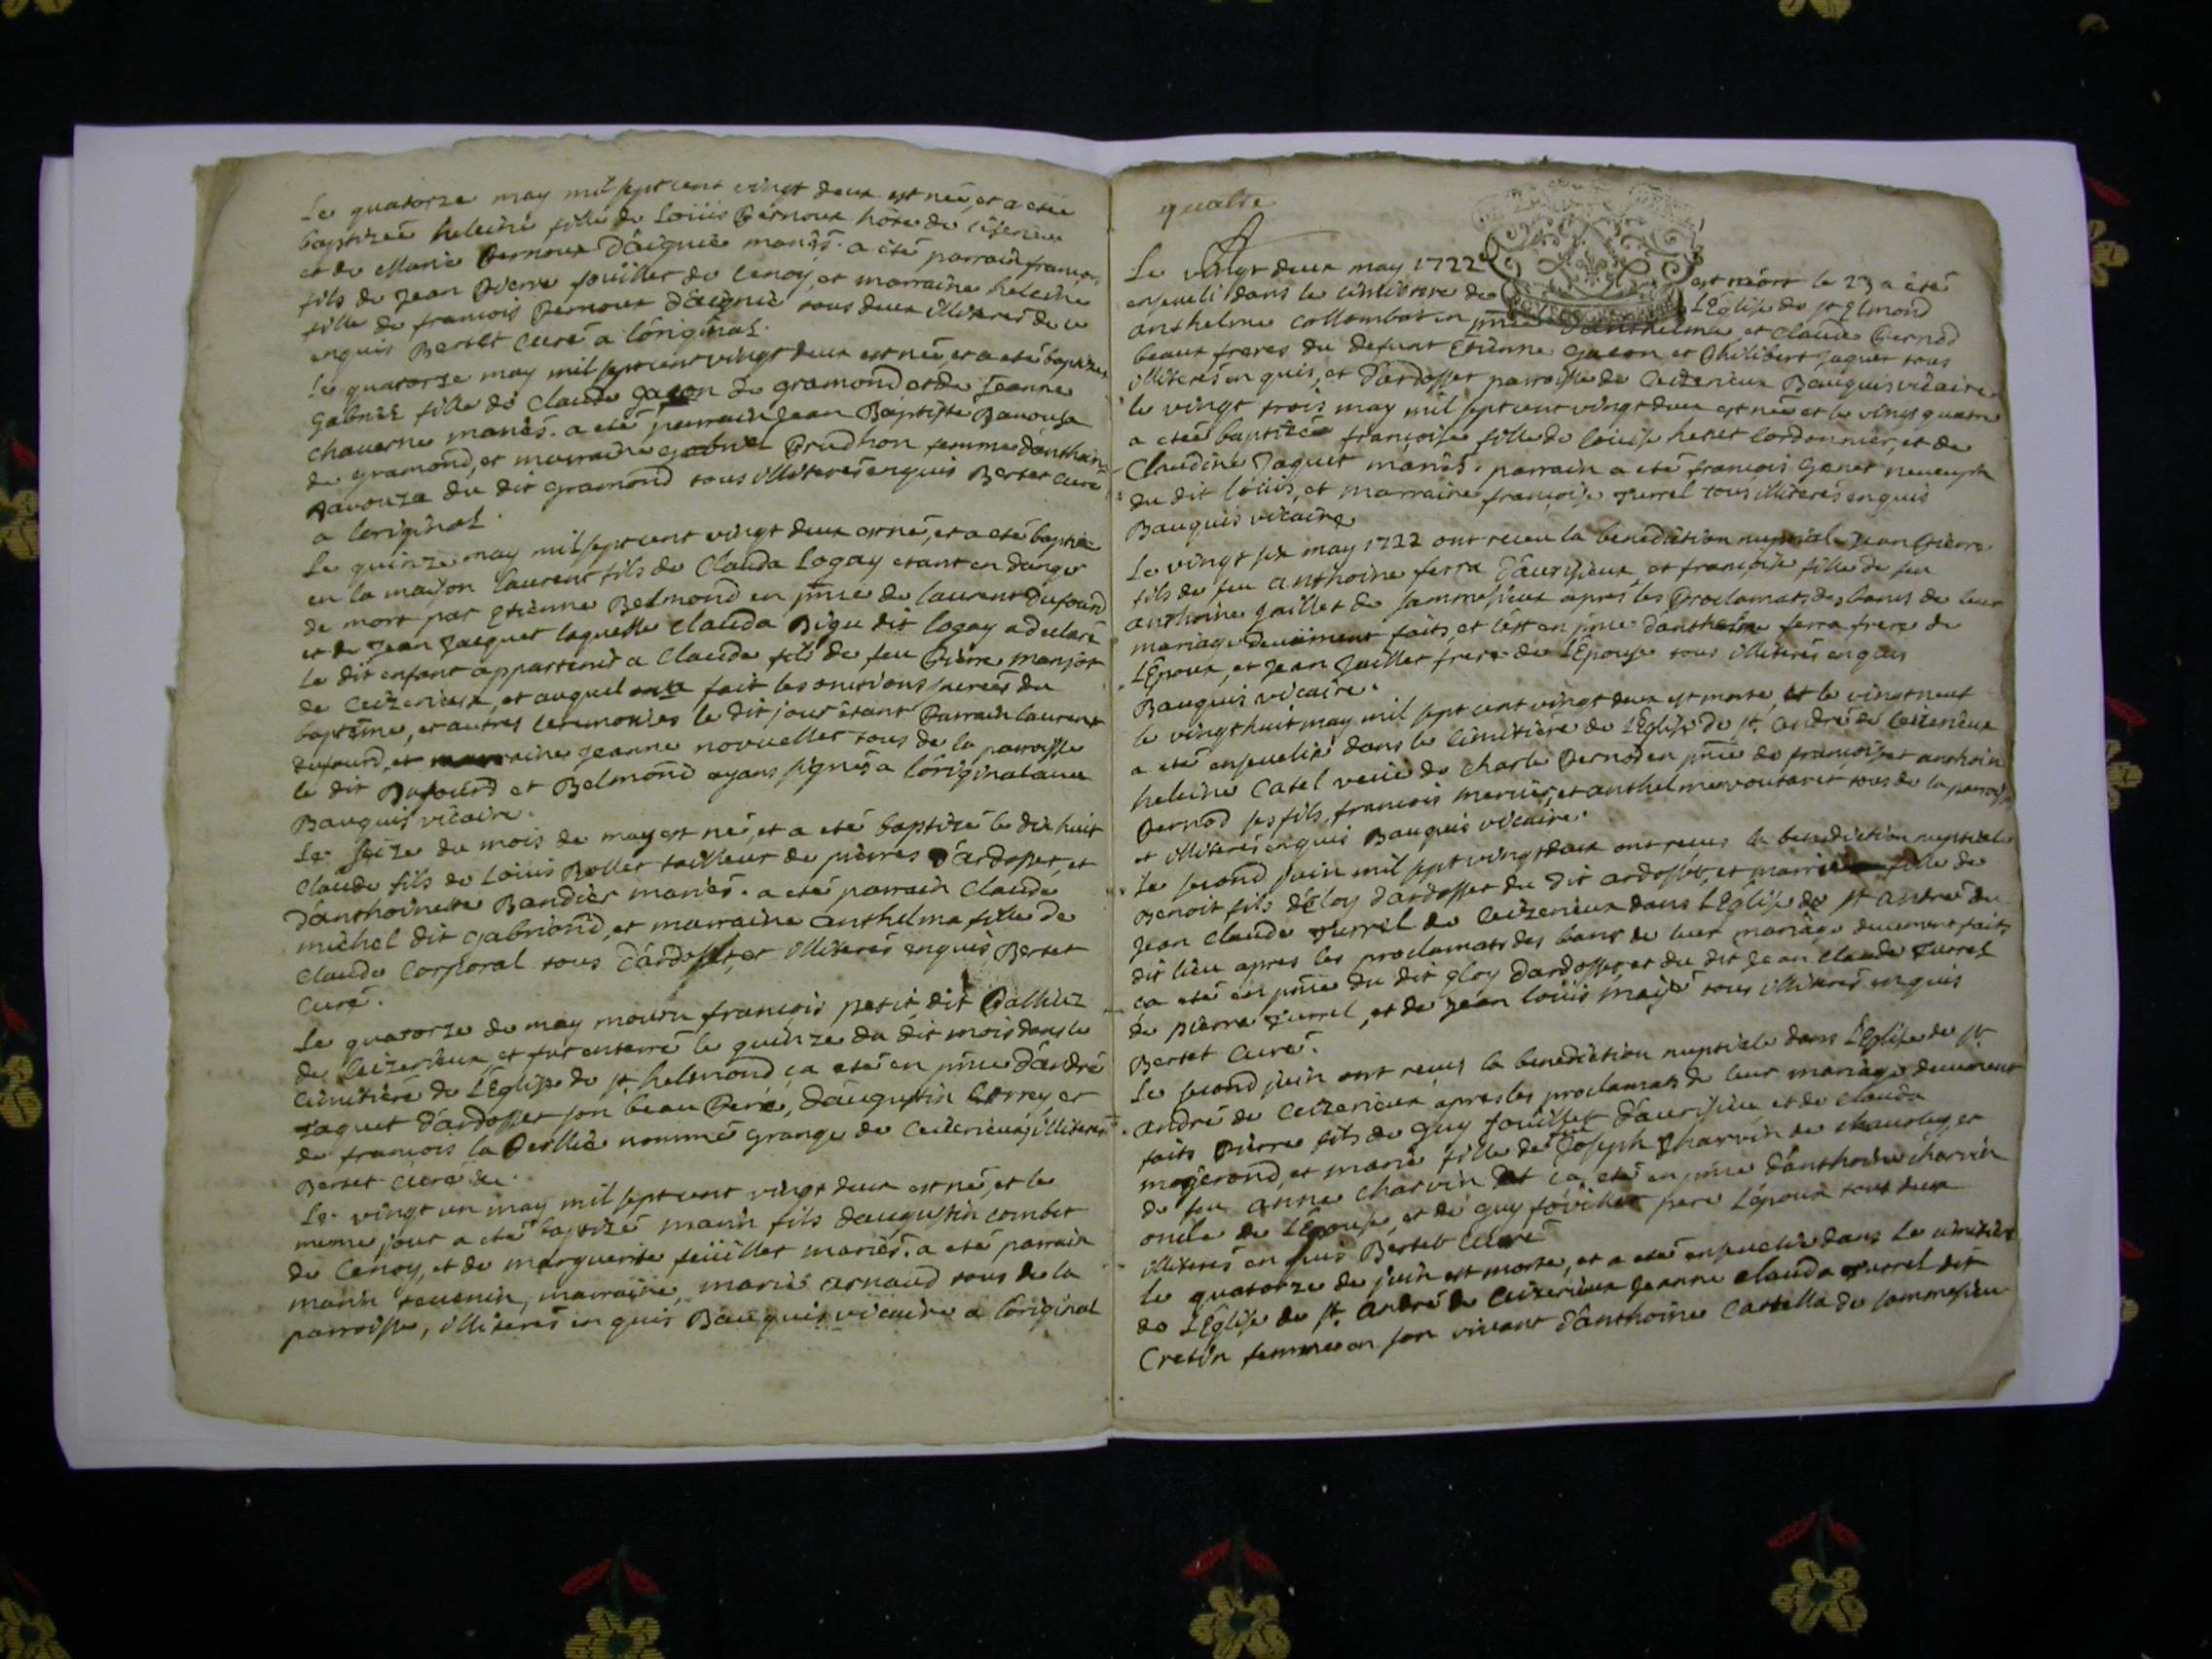 Le quatorze may mil sept cent vingt deux est neé, et a eteé
baptizeé heleine fille de Loüis Pernoux hôte de
et de Marie Pernoux D'aignié mariés. a eté parrain francois
fils de Jean Pierre fouillet de Cenoy, et marraine heleine
fille de francois Pernoux D'aignié tous deux illiterés de ce
enquis Bertet Curé a l'original.
Le quatorze may mil sept cent vingt deux est neé, et a eté baptizeé
Gabriel fille de Claude Gacon de gramond et de Jeanne
chauerne mariés. a eté parrain Jean Baptiste Bauouza
de gramond, et marraine gabriel Prudhon femme d'anthoine
Bauouza du dit gramond tous illiterés enquis Bertet Curé
a l'original.
Le quinze may mil sept cent vingt deux est né, et a eté baptizé
en la maison laurent fils de Clauda Logay etant en danger
de mort par Etienne Belmond en pnce de laurent Dufourd
et de Jean Jacquet laquelle Clauda Bigu dit logay a declaré
le dit enfant appartenir a Claude fils de feu Pierre manjot
de Ceizerieux, et auquel on a fait les onctions sacrées du
baptême, et autres ceremonies le dit jour étant Parrain laurent
dufourd, et marraine Jeanne nouuellet tous de la parroisse
le dit Dufourd et Belmond ayans signés a l'original auec
Bauquis vicaire.
Le seize du mois de may est né, et a eté baptizé le dix huit
Claude fils de Loüis Rollet tailleur de pierres d'ardosset, et
d'anthoinette Bandier mariés. a eté parrain Claude
michel dit gabriond, et marraine anthelma fille de
Claude Corporal tous d'ardosset, et illiterés enquis Bertet
Curé.
Le quatorze de may mourut francois petit dit Palliuz
de Ceizerieux, et fut enterré le quinze du dit mois dans le
cimitiére de l'Eglise de st. helmond ça eté en pnce d'andré
Jaquet d'ardosset son beau Pere, d'augustin Correy, et
de francois la Perllie nommé grange de Ceizerieux, illiterés
Bertet Curé de
Le vingt un may mil sept cent vingt deux est né, et le
meme jour a eté baptizé marin fils d'augustin combet
de Cenoy, et de marguerite feüillet mariés. a eté parrain
marin teuenin, marraine, marie arnaud tous de la
parroisse, illiterés enquis Bauquis vicaire a l'original
quatre
Le vingt deux may 1722 est mort le 23 a eté
enseueli dans le cimitiere de l'Eglise de st Elmond
anthelme Collombat en pnce d'anthelme et Claude Pernod
beaux freres du defunt Etienne gacon et Philibert Jaquet tous
illiterés enquis, et d'ardosset parroisse de Ceizerieux Bauquis vicaire
le vingt trois may mil sept cent vingt deux est neé et le vingt quatre
a eteé baptizeé françoise fille de loüis henet Cordonnier, et de
Claudine Jaquet mariés. parrain a eté francois Genet
du dit loüis, et marraine françoise Jurrel tous illiterés enquis
Bauquis vicaire
Le vingt six may 1722 ont receu la benediction nuptiale Jean Pierre
fils de feu anthoine ferra d'aurisieux et françoise fille de feu
anthoine Jaillet de sammesieux aprés les Proclamats des bancs de leur
mariage deuëment faits, et c'est en pnce d'anthelme ferra frere de
l'Epoux, et Jean Jaillet frere de l'Epouse tous illiterés enquis
Bauquis vicaire.
le vingt huit may mil sept cent vingt deux est morte, et le vingt neuf
a eté enseuelie dans le cimitiére de l'Eglise de st. andré de Ceizerieux
heleine Catel veüe de Charle Pernod en pnce de françois et anthoine
Pernod ses fils, francois mercier, et anthelme voutaret tous de la parroisse
et illiterés enquis Bauquis vicaire.
Le second juin mil sept vingt deux ont receus la benediction nuptiale
Benoit fils d'Eloy d'ardosset du dit ardosset, et marie fille de
Jean Claude Jurrel de Ceizerieux dans l'Eglise de st andré du
dit lieu apres les proclamats des bans de leur mariâge deuement faits
ça eté en pnce du dit Eloy d'ardosset, et du dit Jean Claude Jurrel
de pierre Jurrel, et de Jean loüis tous illiterés enquis
Bertet Curé.
Le second juin ont reçus la benediction nuptiale dans l'Eglise de st
andré de Ceizerieux apres les proclamats de leur mariage deuement
faits Pierre fils de Guy fouillet d'aurisieu et de Clauda
mogerond, et marie fille de feu Joseph Charvin de chauoley, et
de feu anne Charvin et ça eté en pnce d'anthoine charvin
oncle de l'Epouse, et de guy fouillet pere l'époux tous deux
illiterés enquis Bertet Curé
le quatorze de juin est morte, et a eté enseuelie dans le cimitiére
de l'Eglise de st. andré de Ceizerieux Jeanne Clauda Jurrel dit
Cretin femme en son vivant d'anthoine Castella de sammesieu